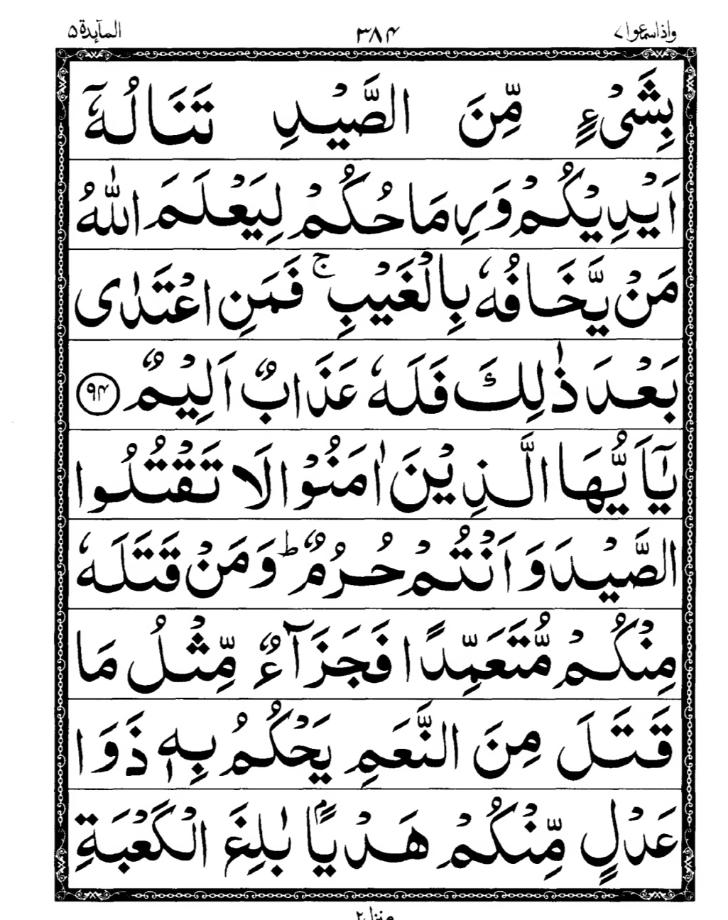 واذاسمعوا۷ ۳۸۴ المآیدة۵
بِشَیْءٍ مِّنَ الصَّیْدِ تَنَالُهٗۤ
اَیْدِیْكُمْ وَرِمَاحُكُمْ لِیَعْلَمَ اللّٰهُ
مَنْ یَّخَافُهٗ بِالْغَیْبِ ۚ فَمَنِ اعْتَدٰی
بَعْدَ ذٰلِكَ فَلَهٗ عَذَابٌ اَلِیْمٌ ﴿۹۴﴾
یٰۤاَیُّهَا الَّذِیْنَ اٰمَنُوْا لَا تَقْتُلُوا
الصَّیْدَ وَاَنْتُمْ حُرُمٌ ؕ وَمَنْ قَتَلَهٗ
مِنْكُمْ مُّتَعَمِّدًا فَجَزَآءٌ مِّثْلُ مَا
قَتَلَ مِنَ النَّعَمِ یَحْكُمُ بِهٖ ذَوَا
عَدْلٍ مِّنْكُمْ هَدْیًۢا بٰلِغَ الْكَعْبَةِ
منزل۲